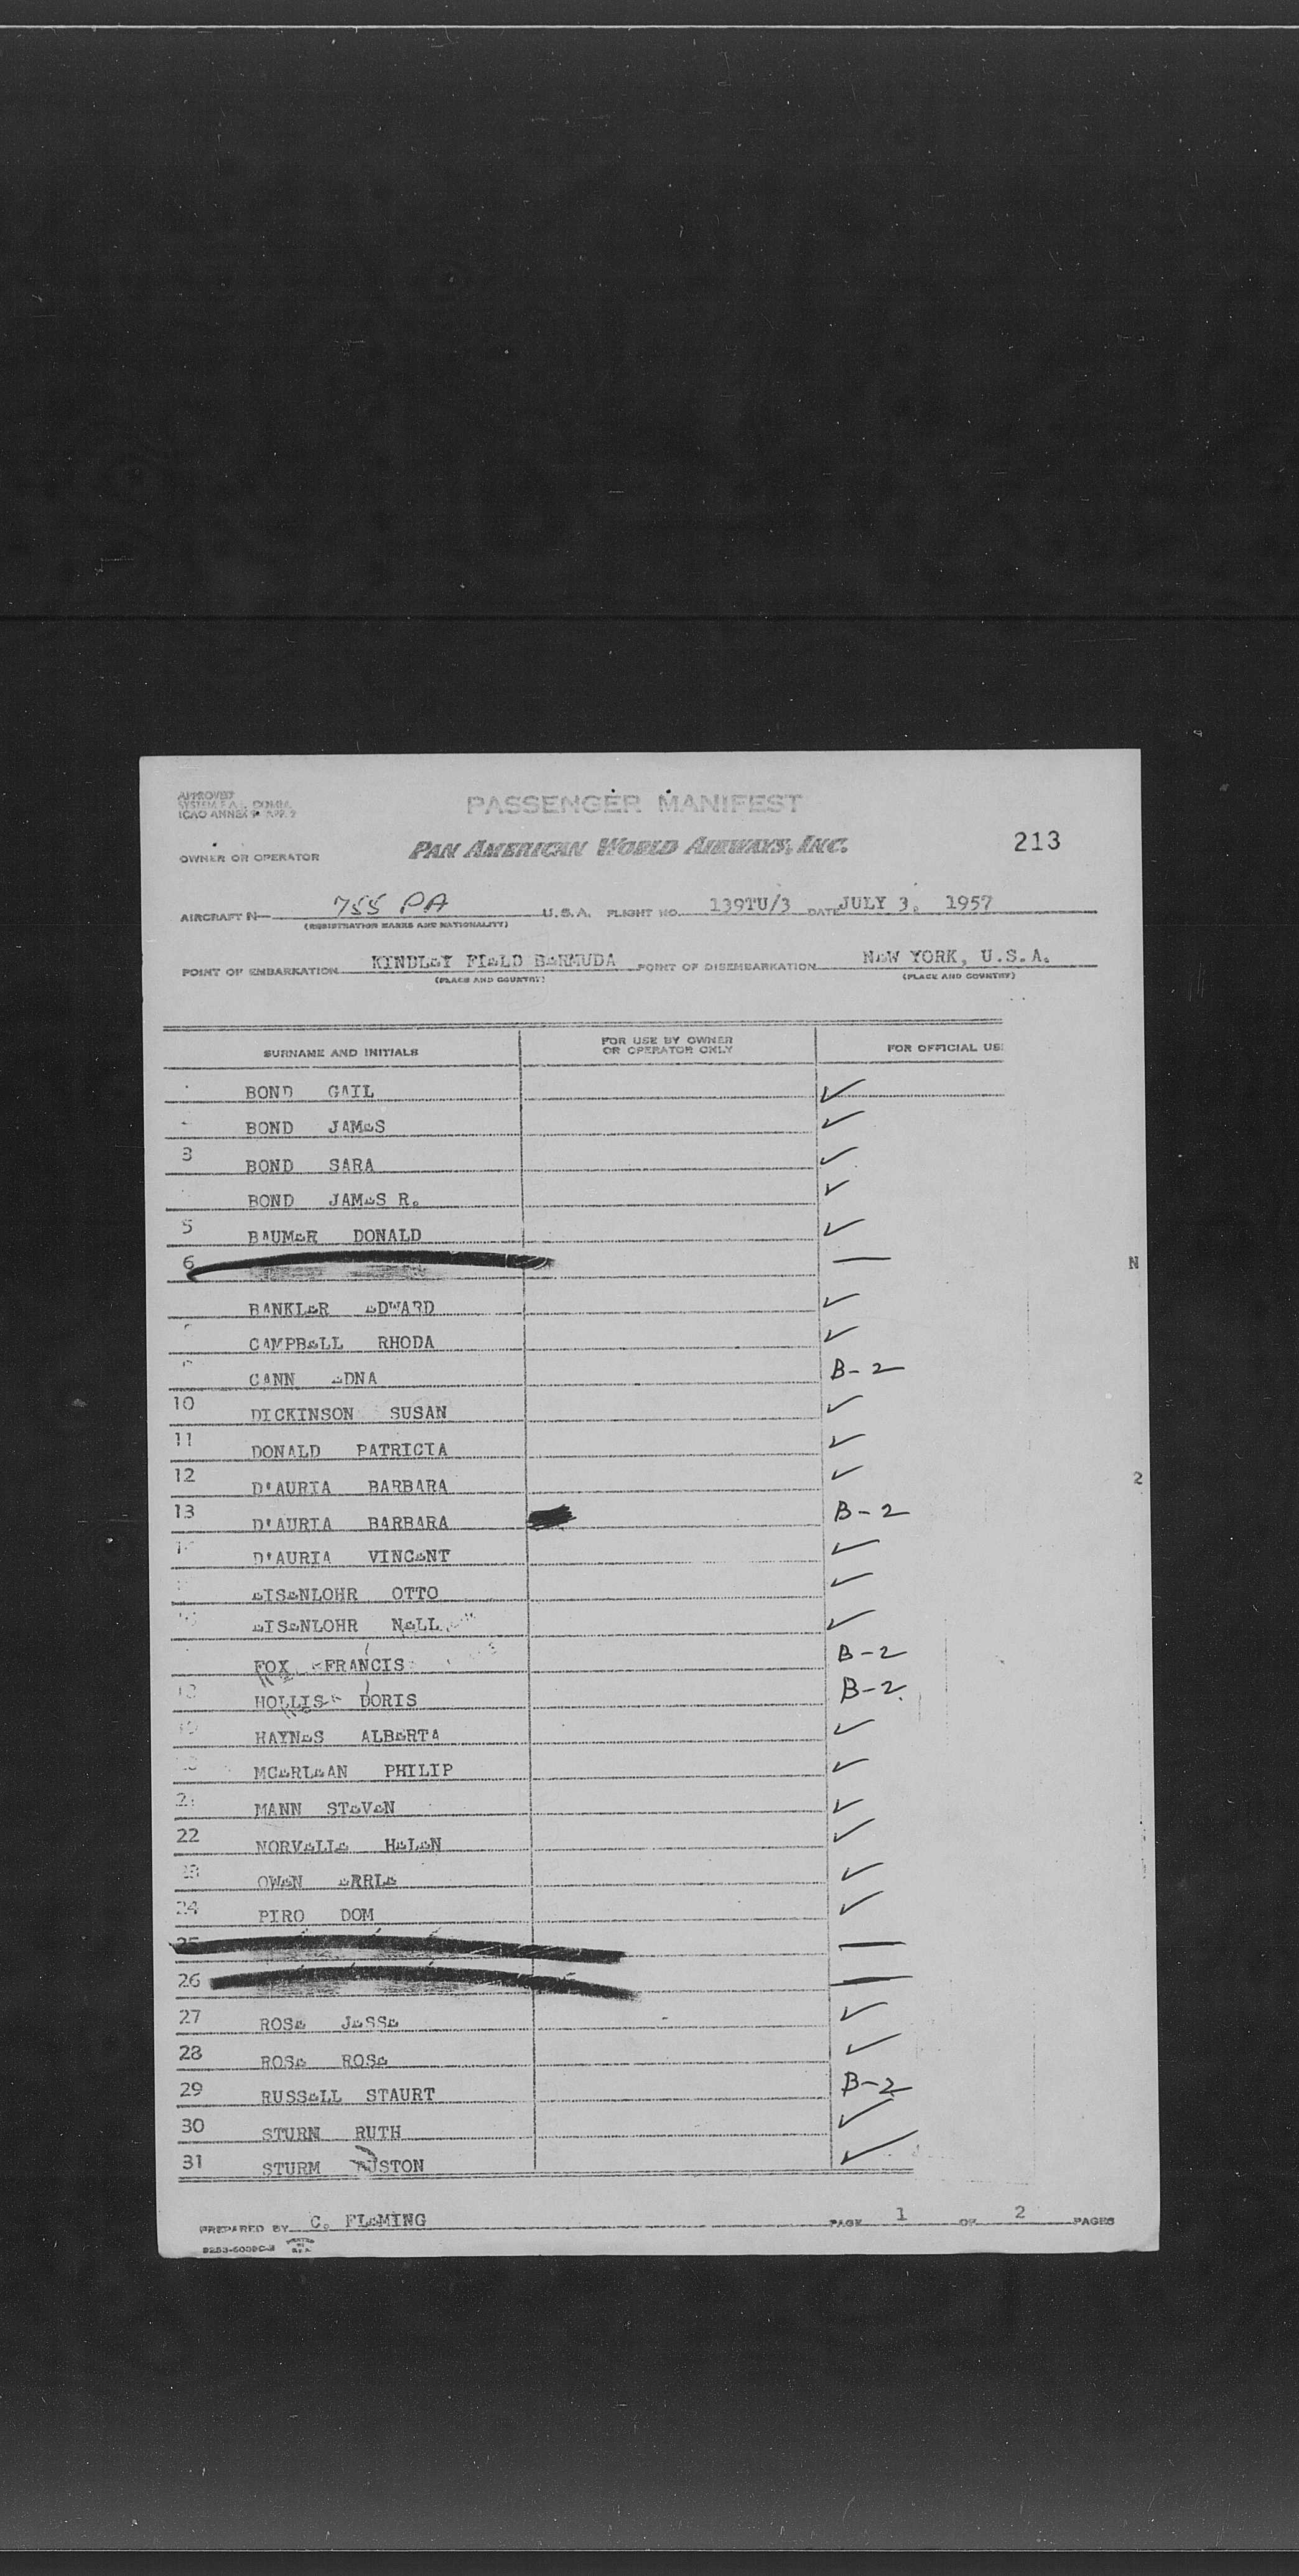 APPROVED
SYSTEM F.A.L. COMM.
ICAO ANNEX 9 APP. 2
PASSENGER MANIFEST
OWNER OR OPERATOR PAN AMERICAN WORLD AIRWAYS, INC. 213
AIRCRAFT N— 755 PA U.S.A. FLIGHT NO. 139TU/3 DATE JULY 3. 1957
(REGISTRATION MARKS AND NATIONALITY)
POINT OF EMBARKATION KINDLEY FIELD BERMUDA POINT OF DISEMBARKATION NEW YORK, U.S.A.
(PLACE AND COUNTRY) (PLACE AND COUNTRY)
SURNAME AND INITIALS FOR USE BY OWNER OR OPERATOR ONLY FOR OFFICIAL US
BOND GAIL ✓
BOND JAMES ✓
3 BOND SARA ✓
BOND JAMES R. ✓
5 BAUMER DONALD ✓
6 — N
BANKLER EDWARD ✓
CAMPBELL RHODA ✓
CANN EDNA B-2
10 DICKINSON SUSAN ✓
11 DONALD PATRICIA ✓
12 D'AURIA BARBARA ✓ 2
13 D'AURIA BARBARA B-2
D'AURIA VINCENT ✓
EISENLOHR OTTO ✓
EISENLOHR NELL ✓
FOX FRANCIS B-2
18 HOLLIS DORIS B-2
19 HAYNES ALBERTA ✓
MCERLEAN PHILIP ✓
21 MANN STEVEN ✓
22 NORVELLE HELEN ✓
23 OWEN ERRLE ✓
24 PIRO DOM ✓
25 —
26 —
27 ROSE JESSE ✓
28 ROSE ROSE ✓
29 RUSSELL STAURT B-2
30 STURN RUTH ✓
31 STURM JUSTON ✓
PREPARED BY C. FLEMING PAGE 1 OF 2 PAGES